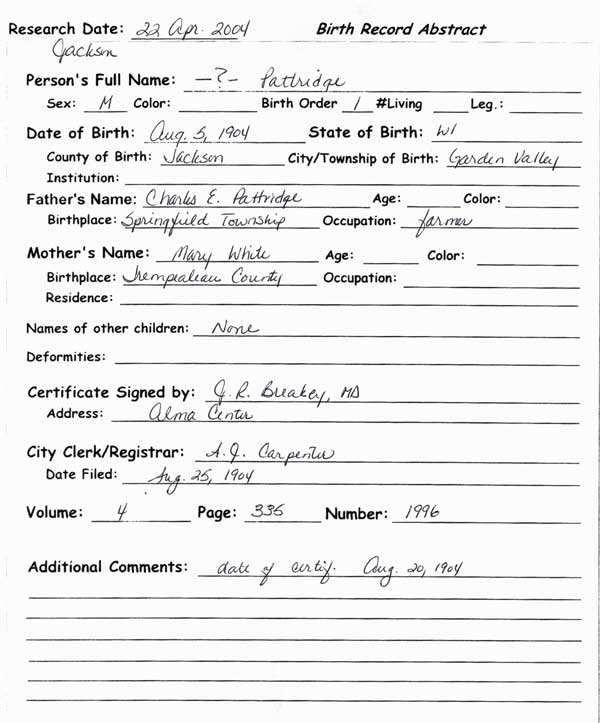 Research Date: 22 Apr. 2004 Birth Record Abstract
Jackson
Person's Full Name: —?— Pattridge
Sex: M Color: Birth Order 1 #Living Leg.:
Date of Birth: Aug. 5, 1904 State of Birth: WI
County of Birth: Jackson City/Township of Birth: Garden Valley
Institution:
Father's Name: Charles E. Pattridge Age: Color:
Birthplace: Springfield Township Occupation: farmer
Mother's Name: Mary White Age: Color:
Birthplace: Trempealeau County Occupation:
Residence:
Names of other children: None
Deformities:
Certificate Signed by: J. R. Breakey, MD
Address: Alma Center
City Clerk/Registrar: A. J. Carpenter
Date Filed: Aug. 25, 1904
Volume: 4 Page: 335 Number: 1996
Additional Comments: date of certif. Aug. 20, 1904